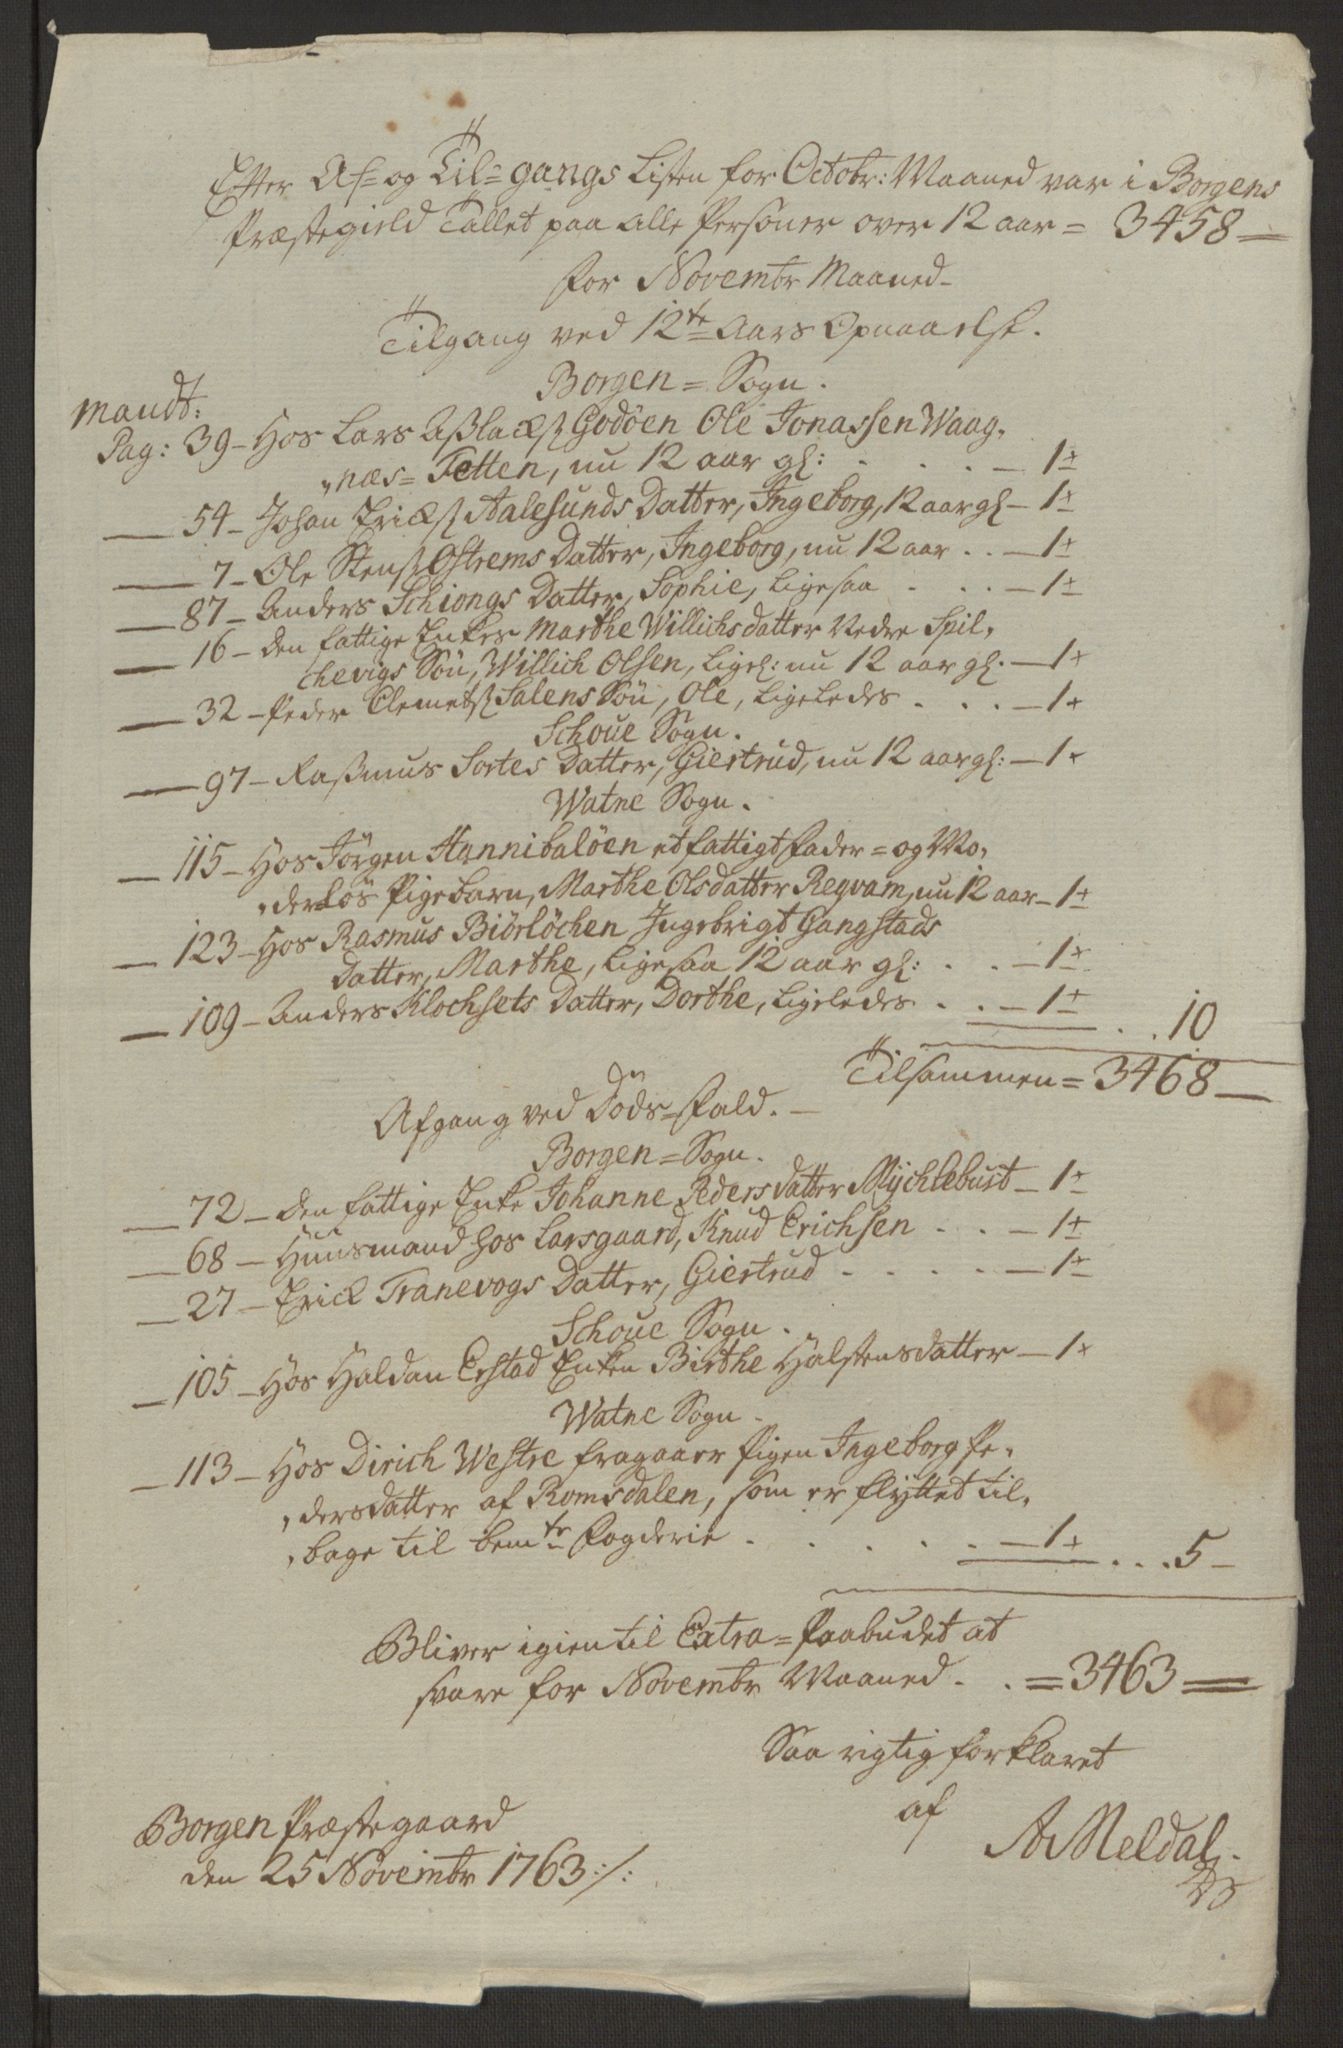 Efter Af= og Til=gangs Listen for Octobr: Maaned var i Borgens
Præstegield Tallet paa alle Personer over 12 aar = 3458 —
for Novembr Maaned —
Tilgang ved 12te Aars Opnaaelse.
Borgen = Sogn.
Mandt:
Pag: 39 — Hos Lars Aslachs: Godöen Ole Jonassen Waag,
„næs = Fetten, nu 12 aar gl: . . . . — 1
— 54 — Johan Ericks: Aalesunds Datter, Ingeborg, 12 aar gl — 1
— 7 — Ole Stens: Ostrems Datter, Ingeborg, nu 12 aar . . — 1
— 87 — Anders Schiongs Datter, Sophie, ligesaa . . . — 1
— 16 — Den fattige Enkes Marthe Willichsdatter Nedre Spil,
chevigs Sön, Willich Olsen, ligel: nu 12 aar gl. — 1
— 32 — Peder Clemets: Salens Sön, Ole, ligeledes . . . — 1
Schoue Sogn.
— 97 — Rasmus Sortes Datter, Giertrud, nu 12 aar gl: — 1
Watne Sogn.
— 115 — Hos Jörgen Hannibalöen et fattigt fader = og Mo,
„derlös Pigebarn, Marthe Olsdatter Reqvam, nu 12 aar — 1
— 123 — Hos Rasmus Biörlöchen Ingebrigt Gangstads
Datter, Marthe, ligesaa 12 aar gl: . . — 1
— 109 — Anders Klochsets Datter, Dorthe, ligeledes . . — 1 . . 10
Tilsammen = 3468 —
Afgang ved Döds=fald. —
Borgen = Sogn.
— 72 — Den fattige Enke Johanne Pedersdatter Mychlebust — 1
— 68 — Huusmand hos Larsgaard, Knud Erichsen . . — 1
— 27 — Erick Tranevogs Datter, Giertrud . . . . — 1
Schoue Sogn.
— 105 — Hos Haldan Erstad Enken Birthe Halstensdatter — 1
Watne Sogn.
— 113 — Hos Dirich Westre fragaaer Pigen Ingeborg Pe,
„dersdatter af Romsdalen, som er flyttet til,
„bage til bemte Fogderie . . . . . — 1 . . . 5 —
Bliver igien til Extra = Paabudet at
svare for Novembr Maaned . . = 3463 =
Saa rigtig forklaret
af
A Meldal.
Borgen Præstegaard
den 25 Novembr 1763 :/: